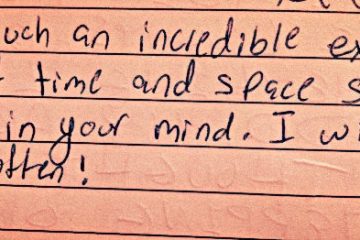 uch an incredible ex
time and space s
in your mind. I wi
often!